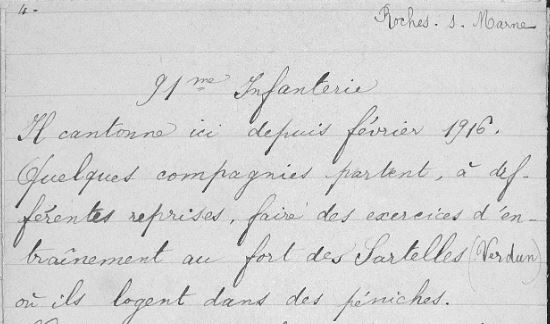 4.
Roches. s. Marne
91me Infanterie
Il cantonne ici depuis février 1916.
Quelques compagnies partent, à def-
férentes reprises, faire des exercices d'en-
traînement au fort des Sartelles (Verdun)
où ils logent dans des péniches.